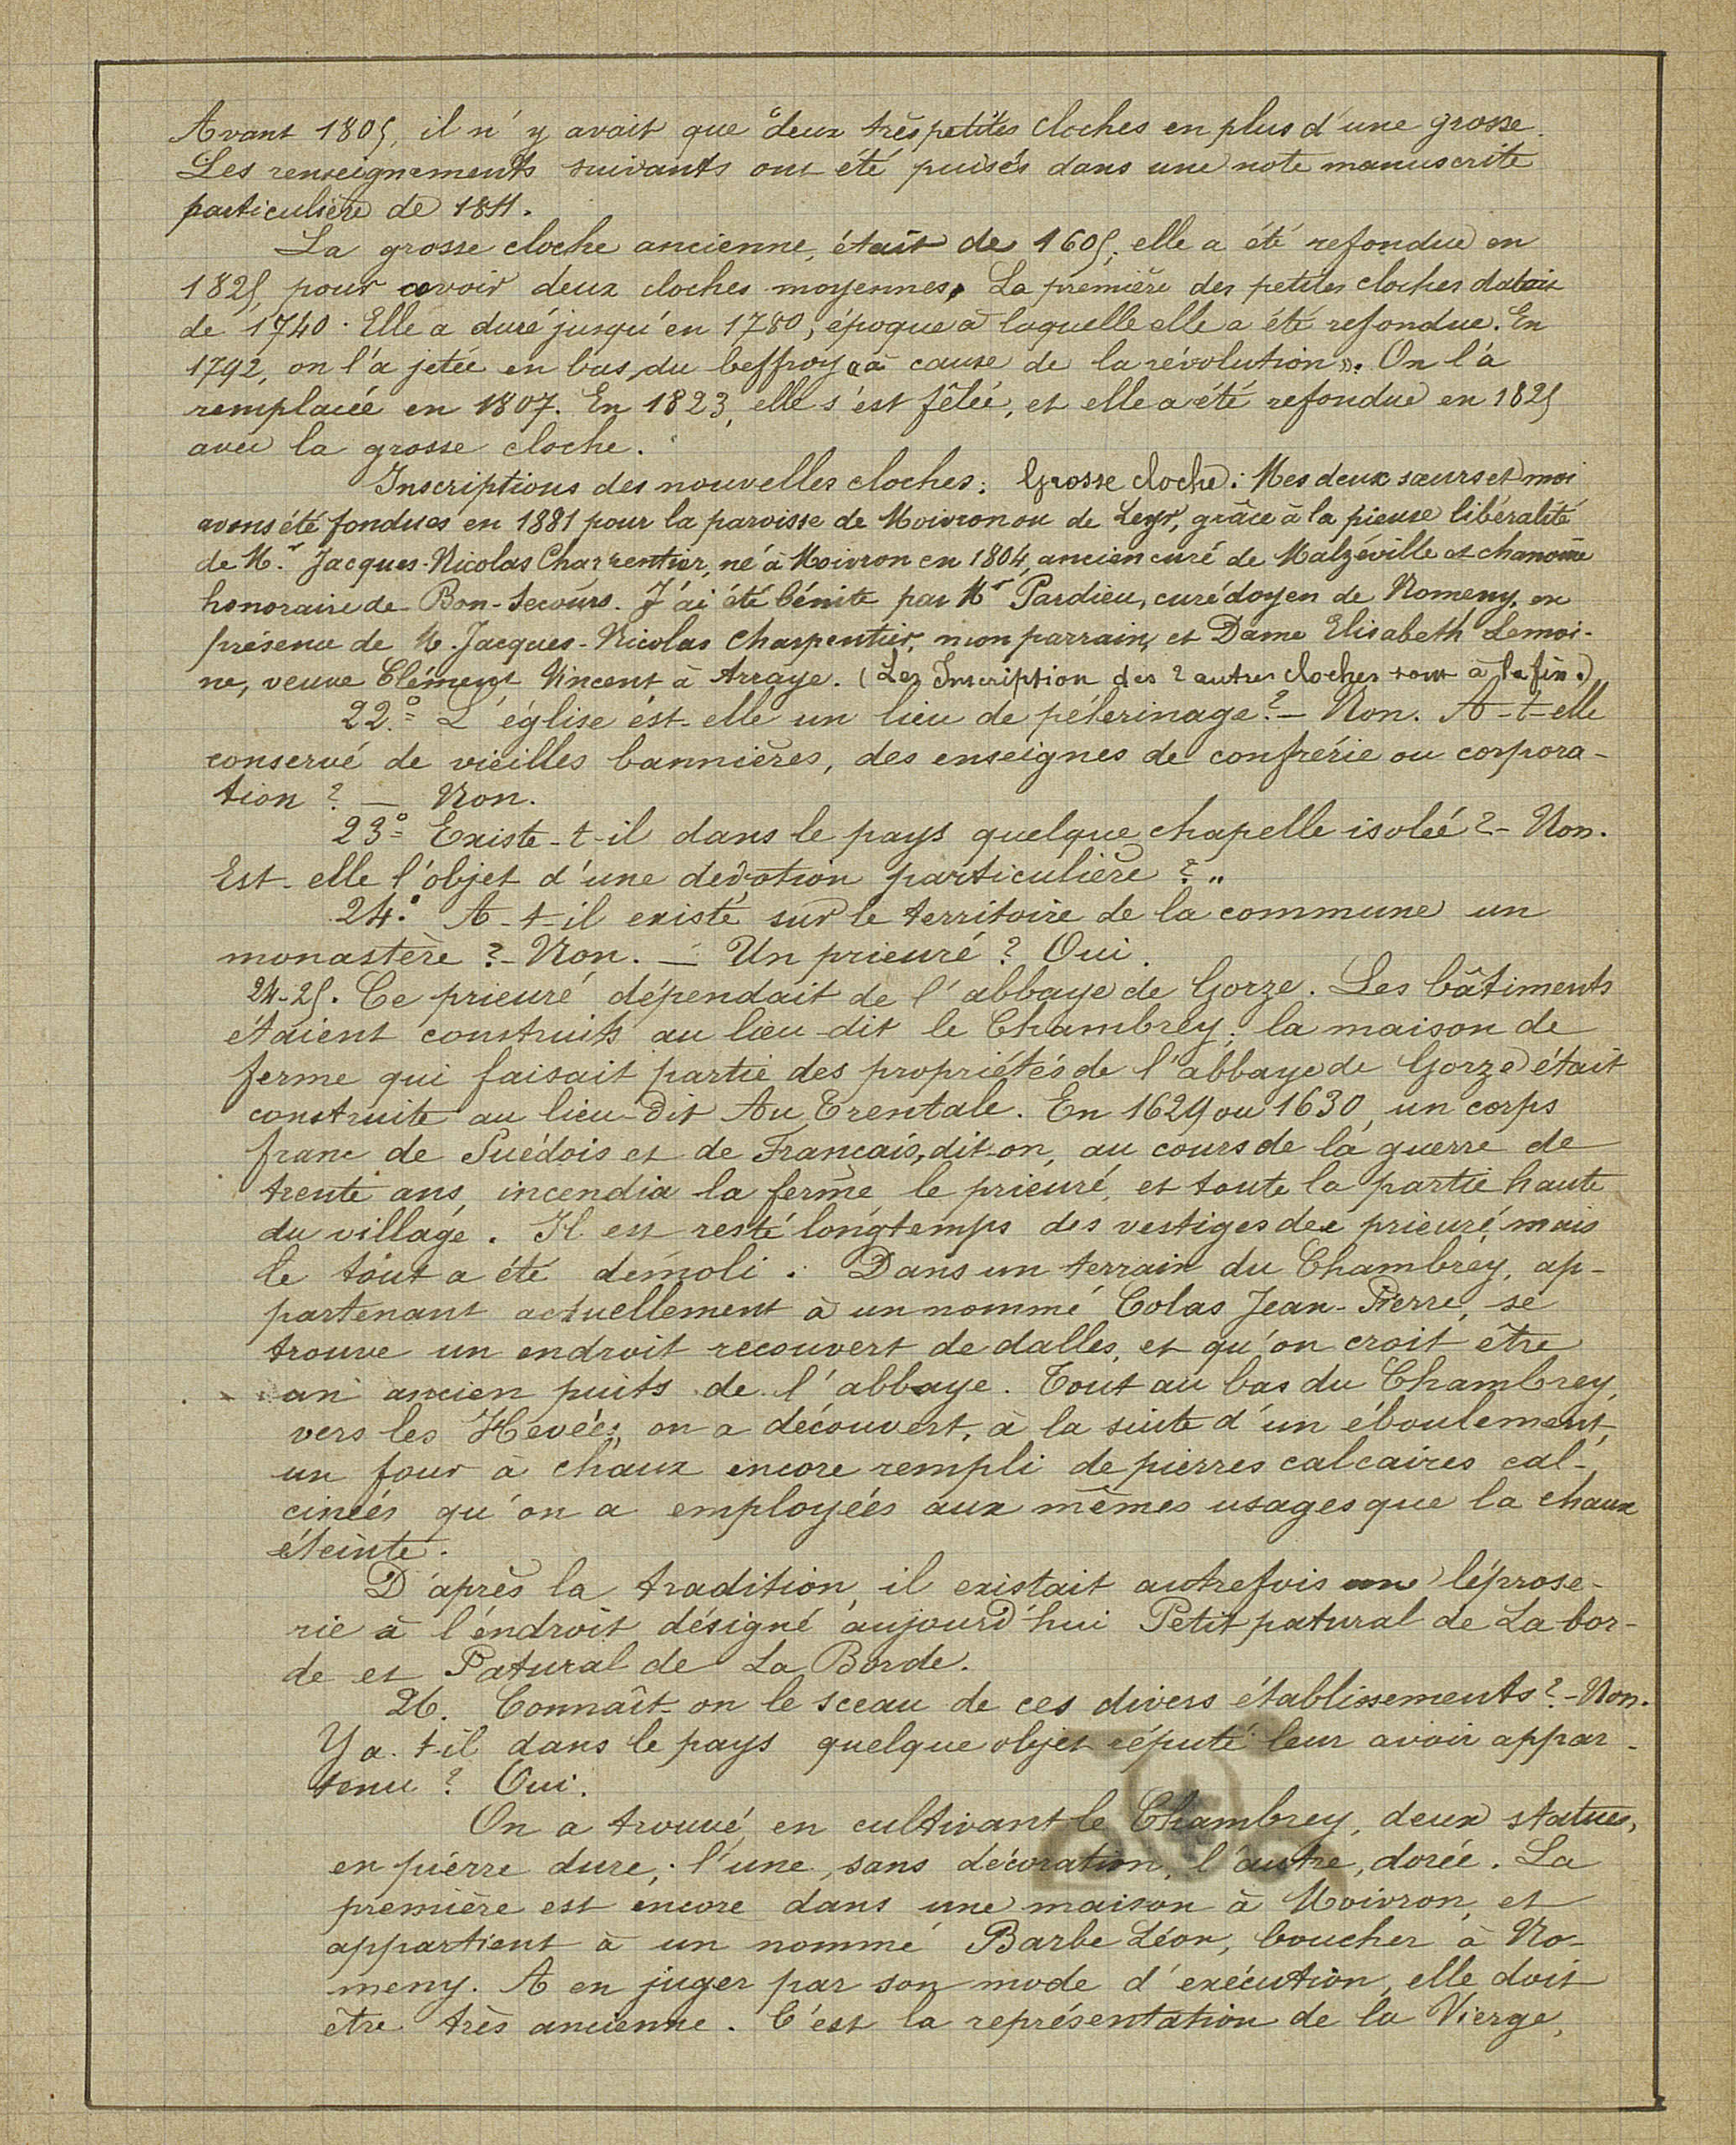 Avant 1805, il n'y avait que deux très petites cloches en plus d'une grosse.
Les renseignements suivants ont été puisés dans une note manuscrite
particulière de 1811.
La grosse cloche ancienne, était de 1605; elle a été refondue en
1825, pour avoir deux cloches moyennes. La première des petites cloches datait
de 1740. Elle a duré jusqu'en 1780, époque à laquelle elle a été refondue. En
1792, on l'a jetée en bas du beffroy « à cause de la révolution ». On l'a
remplacée en 1807. En 1823, elle s'est fêlée, et elle a été refondue en 1825
avec la grosse cloche.
Inscriptions des nouvelles cloches: Grosse cloche: Mes deux sœurs et moi
avons été fondues en 1881 pour la paroisse de Moivron ou de Leyr, grâce à la pieuse libéralité
de Mr. Jacques-Nicolas Charpentier, né à Moivron en 1804, ancien curé de Malzéville et chanoine
honoraire de Bon-Secours. J'ai été bénite par Mr Pardieu, curé doyen de Nomeny, en
présence de M. Jacques-Nicolas Charpentier, mon parrain, et Dame Elisabeth Lemoi-
ne, veuve Clément Vincent à Arraye. (Les Inscription des 2 autres cloches sont à la fin.)
22.° L'église est-elle un lieu de pélerinage? - Non. A-t-elle
conservé de vieilles bannières, des enseignes de confrérie ou corpora-
tion? — Non.
23° Existe-t-il dans le pays quelque chapelle isolée? - Non.
Est-elle l'objet d'une dévotion particulière? "
24.° A-t-il existé sur le territoire de la commune un
monastère? - Non. — Un prieuré? Oui.
24-25. Ce prieuré dépendait de l'abbaye de Gorze. Les bâtiments
étaient construits au lieu-dit le Chambrey; la maison de
ferme qui faisait partie des propriétés de l'abbaye de Gorze était
construite au lieu-dit Au Trentale. En 1629 ou 1630, un corps
franc de Suédois et de Français, dit-on, au cours de la guerre de
trente ans, incendia la ferme le prieuré, et toute la partie haute
du village. Il est resté longtemps des vestiges de ce prieuré, mais
le tout a été démoli. Dans un terrain du Chambrey, ap-
partenant actuellement à un nommé Colas Jean-Pierre, se
trouve un endroit recouvert de dalles, et qu'on croit être
un ancien puits de l'abbaye. Tout au bas du Chambrey,
vers les Hevées, on a découvert, à la suite d'un éboulement,
un four à chaux encore rempli de pierres calcaires cal-
cinées qu'on a employées aux mêmes usages que la chaux
éteinte.
D'après la tradition, il existait autrefois une léprose-
rie à l'endroit désigné aujourd'hui Petit patural de La bor-
de et Patural de La Borde.
26. Connaît-on le sceau de ces divers établissements? - Non.
Y a-t-il dans le pays quelque objet réputé leur avoir appar-
tenu? Oui.
On a trouvé, en cultivant le Chambrey, deux statues,
en pierre dure; l'une, sans décoration, l'autre, dorée. La
première est encore dans une maison à Moivron, et
appartient à un nommé Barbe Léon, boucher à No-
meny. A en juger par son mode d'exécution, elle doit
être très ancienne. C'est la représentation de la Vierge,